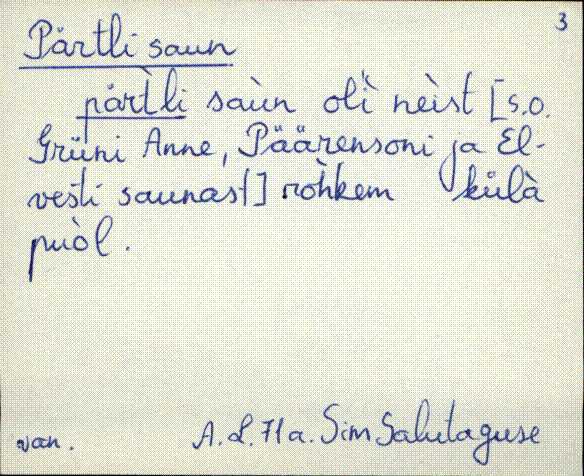 3
Pärtli saun
pärt̀li saùn oli neìst [s.o.
Grüüni Anne, Päärensoni ja El-
vesti saunast] rohkem külà
puòl.
van. A.L. 71a. Sim Salutaguse